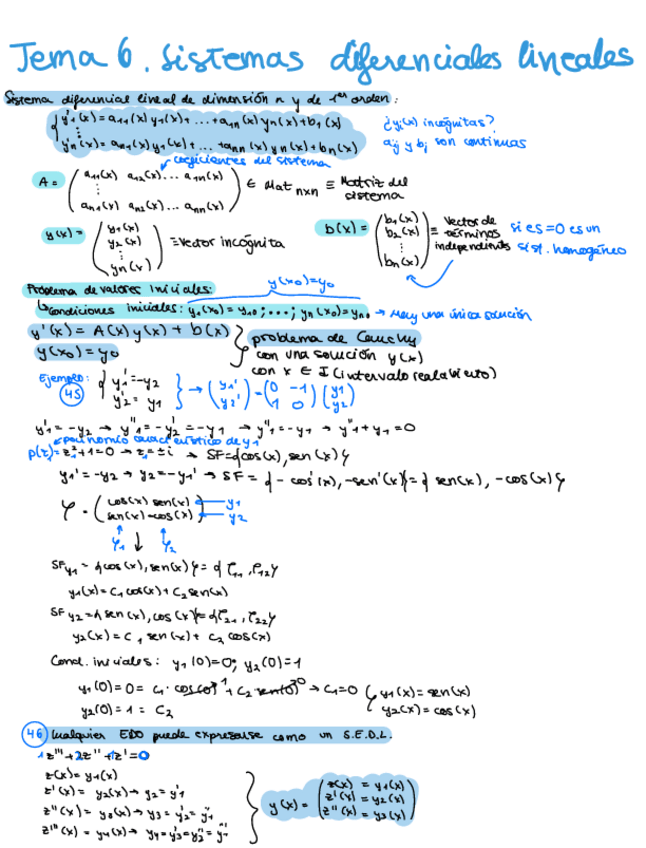 Tema 6. Sistemas diferenciales lineales
Sistema diferencial lineal de dimensión n y de 1er orden:
{ y'₁(x)=a₁₁(x)y₁(x)+...+a₁ₙ(x)yₙ(x)+b₁(x) ¿yᵢ(x) incógnitas?
⋮
y'ₙ(x)=aₙ₁(x)y₁(x)+...+aₙₙ(x)yₙ(x)+bₙ(x) aᵢⱼ y bⱼ son continuas
coeficientes del sistema
A = ( a₁₁(x) a₁₂(x)... a₁ₙ(x) ⋮ aₙ₁(x) aₙ₂(x)... aₙₙ(x) ) ∈ Mat nxn ≡ Matriz del sistema
y(x) = ( y₁(x) y₂(x) ⋮ yₙ(x) ) ≡ vector incógnita b(x) = ( b₁(x) b₂(x) ⋮ bₙ(x) ) ≡ vector de términos independientes si es =0 es un sist. homogéneo
Problema de valores iniciales: y(x₀)=y₀
↳ condiciones iniciales: y₁(x₀)=y₁₀;...; yₙ(x₀)=yₙ₀ → Hay una única solución
y'(x) = A(x)y(x) + b(x) } problema de Cauchy
y(x₀)=y₀ con una solución y(x)
con x ∈ I (intervalo real abierto)
Ejemplo: { y₁'=-y₂
45 y₂'= y₁ } → (y₁' y₂') = (0 -1 1 0) (y₁ y₂)
y₁'=-y₂ → y₁''=-y₂'=-y₁ → y₁''=-y₁ → y₁''+y₁=0
polinomio característico de y₁
p(z)=z²+1=0 → z₁=±i → SF={cos(x), sen(x)}
y₁'=-y₂ → y₂=-y₁' → SF={-cos'(x), -sen'(x)}={sen(x), -cos(x)}
φ = ( cos(x) sen(x) sen(x) -cos(x) ) y₁ y₂
φ₁ ↓ φ₂
SFy₁ = {cos(x), sen(x)} = {φ₁₁, φ₁₂}
y₁(x)=C₁ cos(x)+C₂ sen(x)
SFy₂={sen(x), cos(x)}={φ₂₁, φ₂₂}
y₂(x)=C₁ sen(x)+ C₂ cos(x)
Cond. iniciales: y₁(0)=0; y₂(0)=1
y₁(0)=0= C₁·cos(0)¹+C₂·sen(0)⁰ → C₁=0 { y₁(x)=sen(x)
y₂(0)=1 = C₂ y₂(x)=cos(x)
46 Cualquier EDO puede expresarse como un S.E.D.L.
1z'''+2z''+1z'=0
z(x)=y₁(x)
z'(x)= y₂(x) → y₂=y₁'
z''(x)= y₃(x) → y₃=y₂'=y₁''
z'''(x)= y₄(x) → y₄=y₃'=y₂''=y₁'''
y(x) = ( z(x) = y₁(x) z'(x) = y₂(x) z''(x) = y₃(x) )